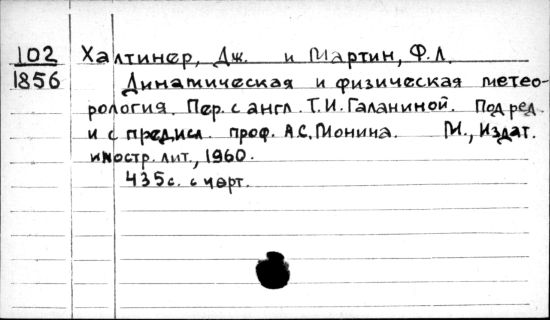 102 Халтинер, Дж. и Мартин, Ф.Л.
1856 Динамическая и физическая метео-
рология. Пер. с англ. Т.И. Галаниной. Под ред.
и с предисл. проф. А.С. Монина. М., Издат.
иностр. лит., 1960.
435 с. с черт.